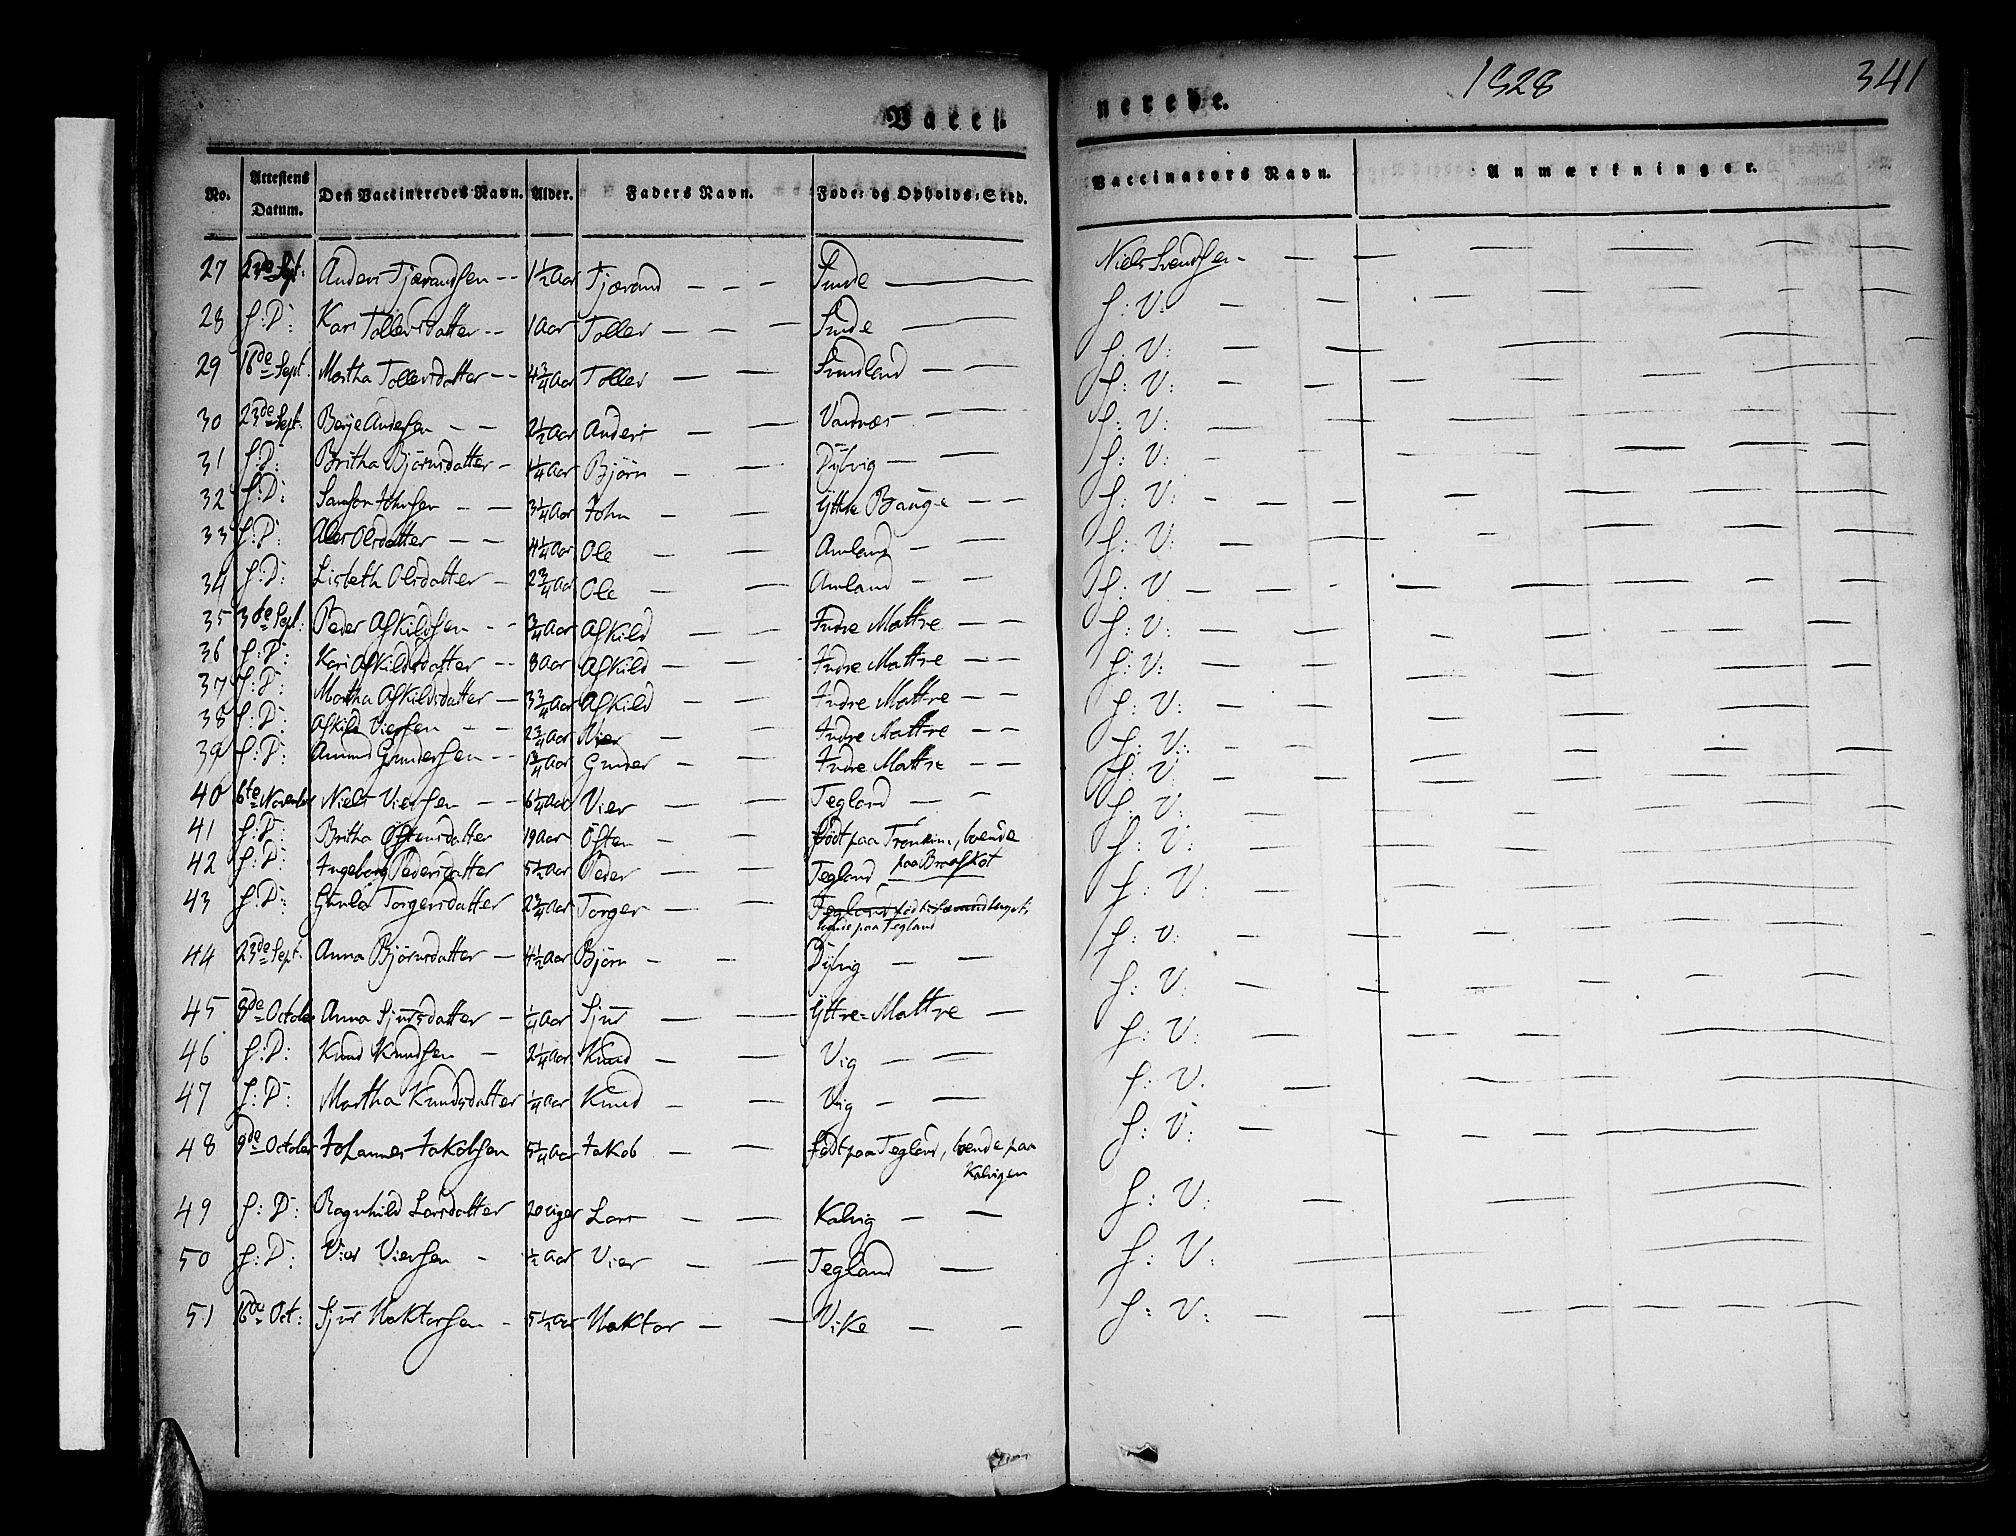 1828 341
Vacci nerede.
No. Attestens Datum. Den Vaccineredes Navn. Alder. Faders Navn. Føde- og Opholds-Sted. Vaccinators Navn. Anmærkninger.
27 23de Sept: Anders Tjærandsen -- 1½ Aar Tjærand - - - Sunde — Niels Svendsen - — —
28 s: D: Kari Tollersdatter -- 1 Aar Toller — — — Sunde — s: V: — —
29 16de Sept. Martha Tollersdatter -- 4¾ Aar Toller — — Sundland — — — s: V: — —
30 23de Sept: Berje Andersen — — 2½ Aar Anders — — Vadnæs — — — s: V: — —
31 s: D: Britha Björnsdatter — 1¼ Aar Björn — — Dýbvig — — — s: V: — —
32 s: D: Samson Johnsen — — 3¼ Aar John — — Ÿttre Bauge — — s: V: — —
33 s: D: Olsdatter — — 4¼ Aar Ole — — Amland — — s: V: — —
34 s: D: Lisbeth Olsdatter — 2¾ Aar Ole — — Amland — — s: V. — —
35 30te Sept: Peder Askildsen — — ¾ Aar Askild — — Indre Mattre — — s: V: — —
36 s: D: Kari Askildsdatter -- 8 Aar Askild — — Indre Mattre — — s: V: — —
37 s: D: Martha Askildsdatter — 3¾ Aar Askild — — Indre Mattre — — s: V: — —
38 s: D: Askild Viersen — — 2¾ Aar Vier — — Indre Mattre — — s: V: — —
39 s: D: Amund Gundersen — — 1¾ Aar Gunder — — Indre Mattre — — s: V: — —
40 6te November Niels Viersen — — 6¼ Aar Vier — — Tegland — — s: V: — —
41 s: D: Britha Östensdatter 19 Aar Östen — — født paa , boende
paa Braskot
42 s: D: Ingeborg Pedersdatter 5½ Aar Peder — — Tegland — s: V: — —
43 s: D: Gunla Torgersdatter 2¾ Aar Torger — — Tegland
boende paa Tegland s: V: — —
44 23de Sept. Anna Björnsdatter — 4½ Aar Björn — — Dýbvig — — s: V: — —
45 9de October Anna Sjursdatter — ¼ Aar Sjur — — Ÿttre-Mattre — s: V: — —
46 s: D: Knud Knudsen — 2¼ Aar Knud — — Vig — — s: V: — —
47 s: D: Martha Knudsdatter ¼ Aar Knud — — Vig — — s: V. — —
48 9de October Johannes Jakobsen 5¼ Aar Jakob — — født paa Tegland, boende paa
Kalvigen s: V: — —
49 s: D: Ragnhild Larsdatter 20 Lars — — Kalvig — — s: V: —
50 s: D: Vier Viersen - ½ Aar Vier — — Tegland — s: V: —
51 16de Oct: Sjur Haktorsen - 5½ Aar Haktor — — Vike — — s: V: — —